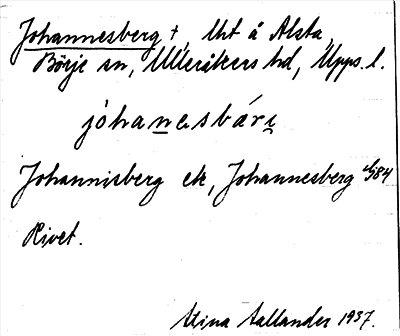 Johannesberg †, lht å Alsta,
Börje sn, Ulleråkers hd, Upps. l.
jóhanesbári
Johannisberg ek, Johannesberg GS 84
Rivet.
Stina Sallander 1937.